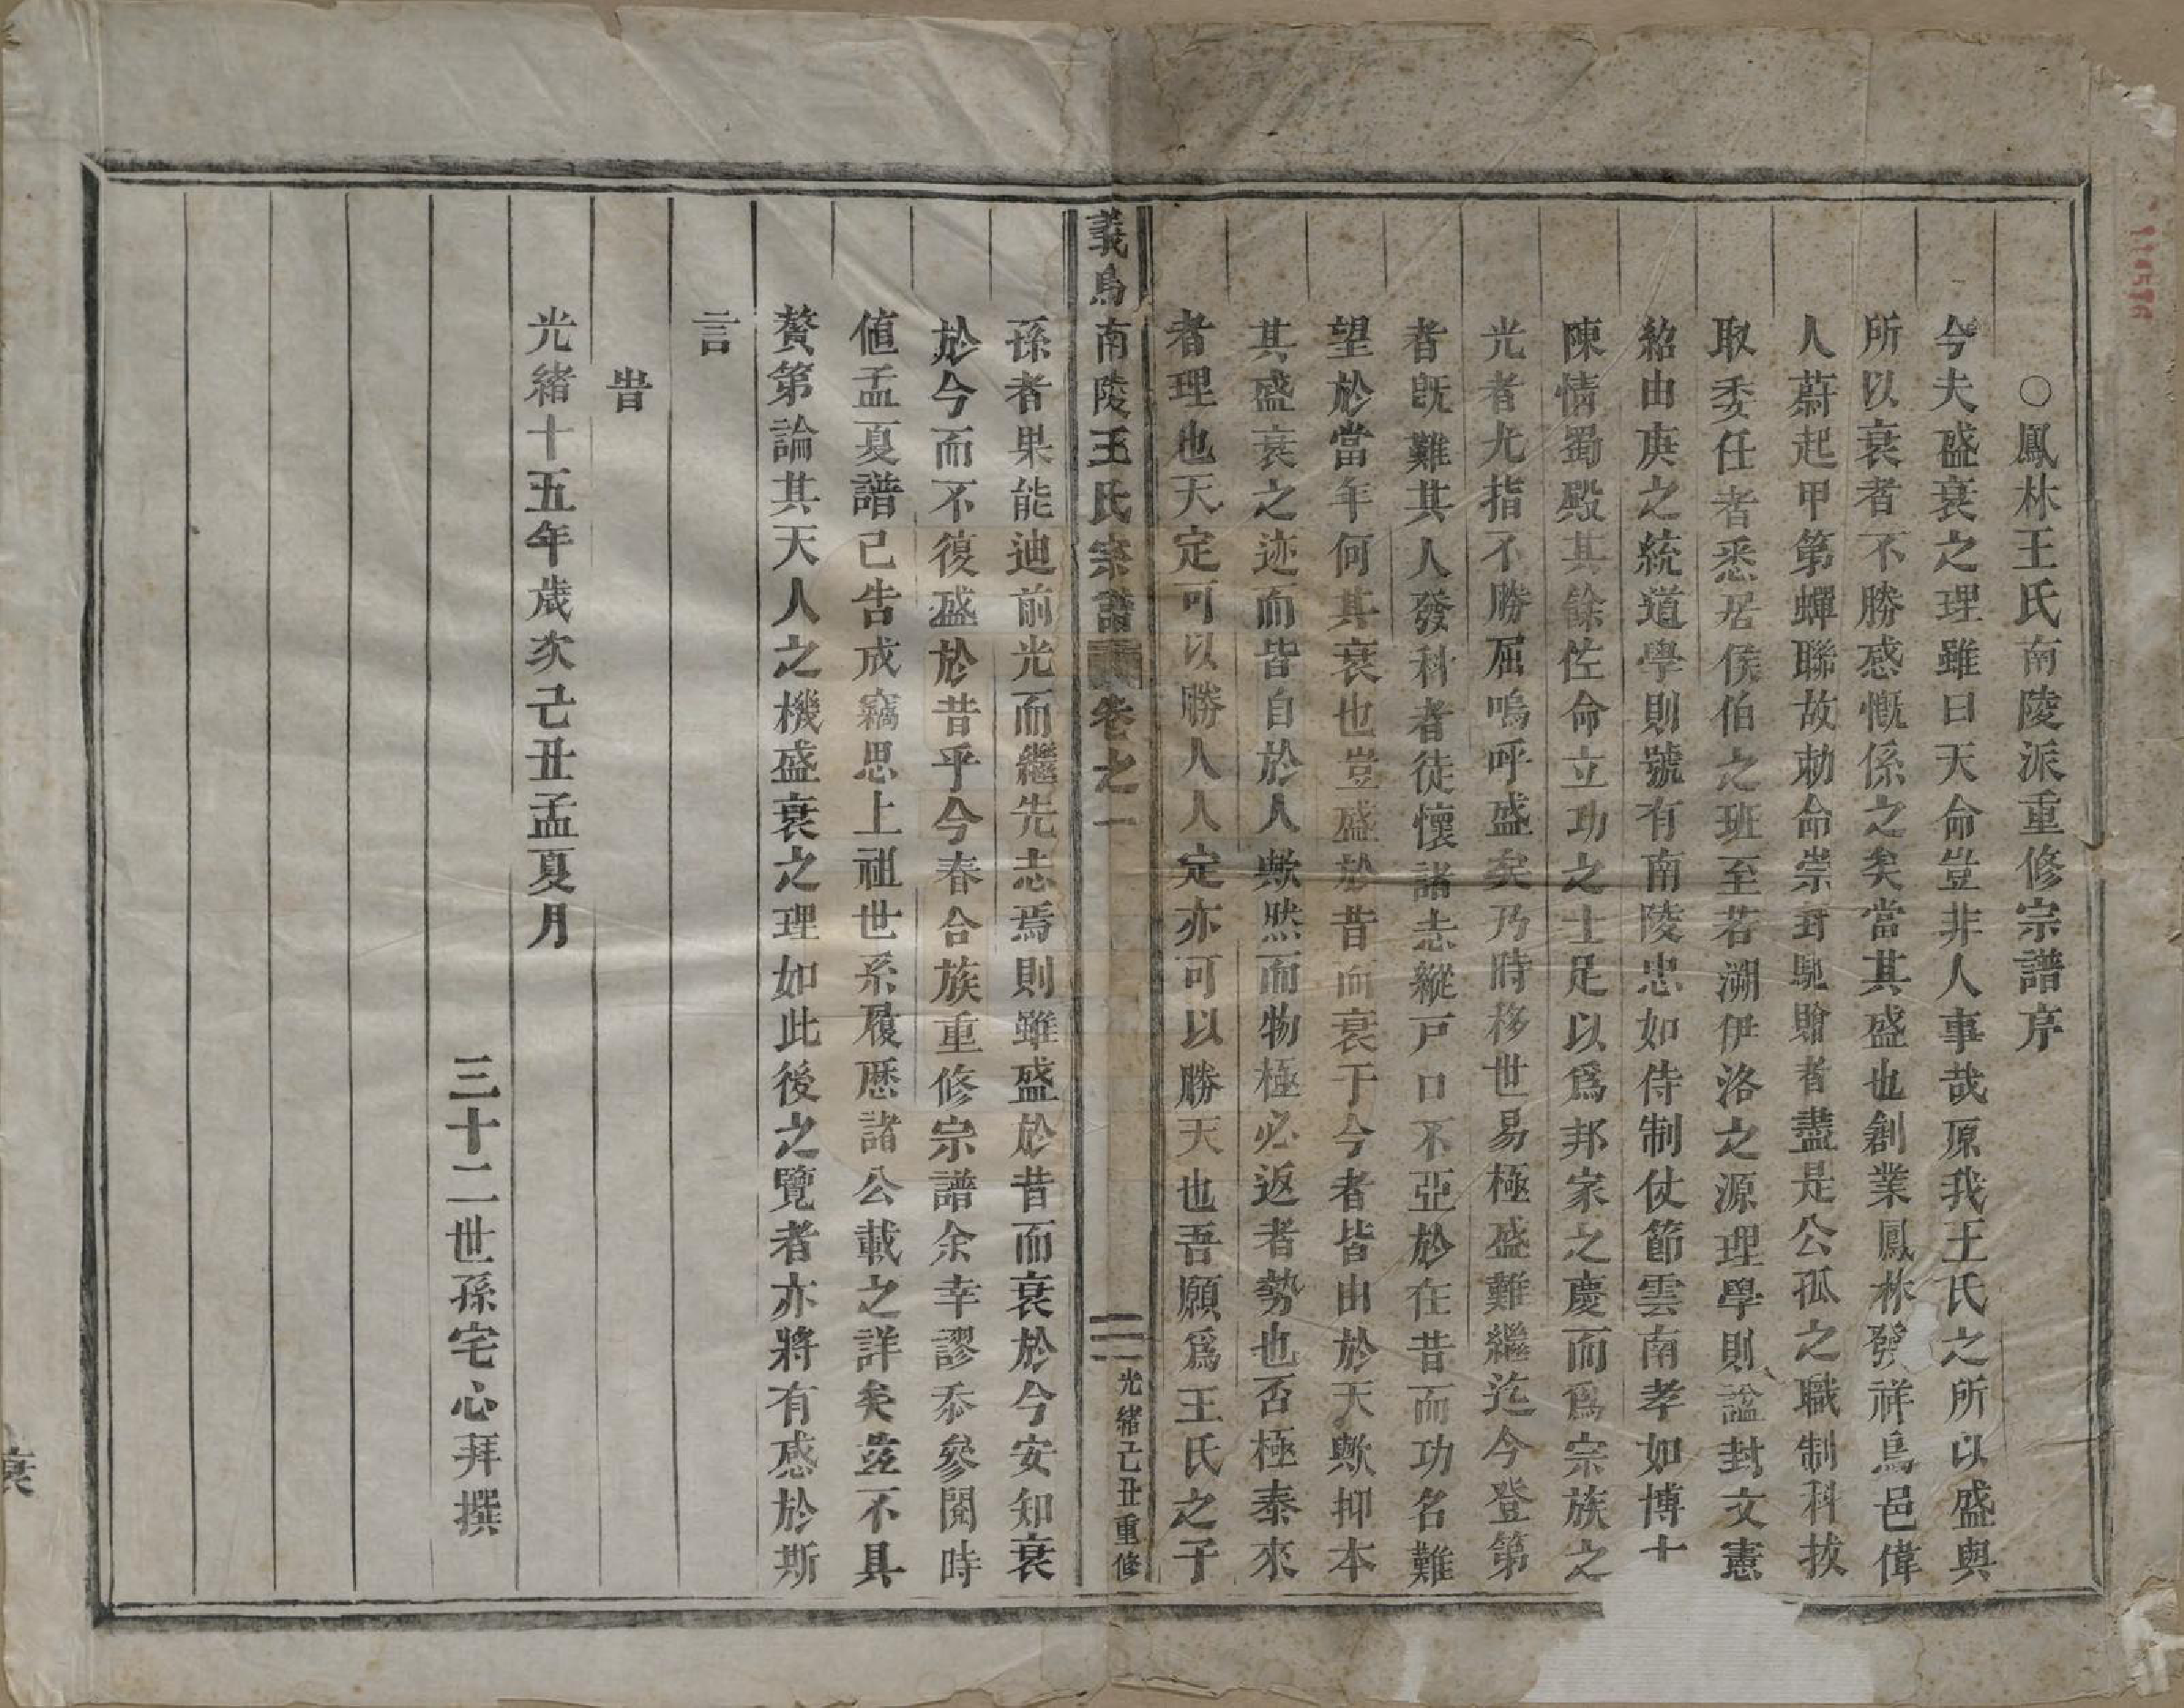 ○鳳林王氏南陵派重修宗譜序
今夫盛衰之理雖曰天命豈非人事哉原我王氏之所以盛與
所以衰者不勝感慨係之矣當其盛也創業鳳林發祥烏邑偉
人蔚起甲第蟬聯故勅命崇封馳贈者盡是公孤之職制科拔
取委任者悉居侯伯之班至若溯伊洛之源理學則謚封文憲
紹由庚之統道學則號有南陵忠如侍制仗節雲南孝如博士
陳情蜀殿其餘佐命立功之士足以爲邦家之慶而爲宗族之
光者尤指不勝屈嗚呼盛矣乃時移世易極盛難繼迄今登第
者旣難其人發科者徒懷諸志縱戸口不亞於在昔而功名難
望於當年何其衰也豈盛於昔而衰于今者皆由於天歟抑本
其盛衰之迹而皆自於人歟然而物極必返者勢也否極泰來
者理也天定可以勝人人定亦可以勝天也吾願爲王氏之子
義烏南陵王氏宗譜 卷之一 三一 光緒己丑重修
孫者果能迪前光而繼先志焉則雖盛於昔而衰於今安知衰
於今而不復盛於昔乎今春合族重修宗譜余幸謬忝參閱時
値孟夏譜已告成竊思上祖世系履歷諸公載之詳矣茲不具
贅第論其天人之機盛衰之理如此後之覽者亦將有感於斯
言
旹
光緒十五年歲次己丑孟夏月
三十二世孫宅心拜撰
衰